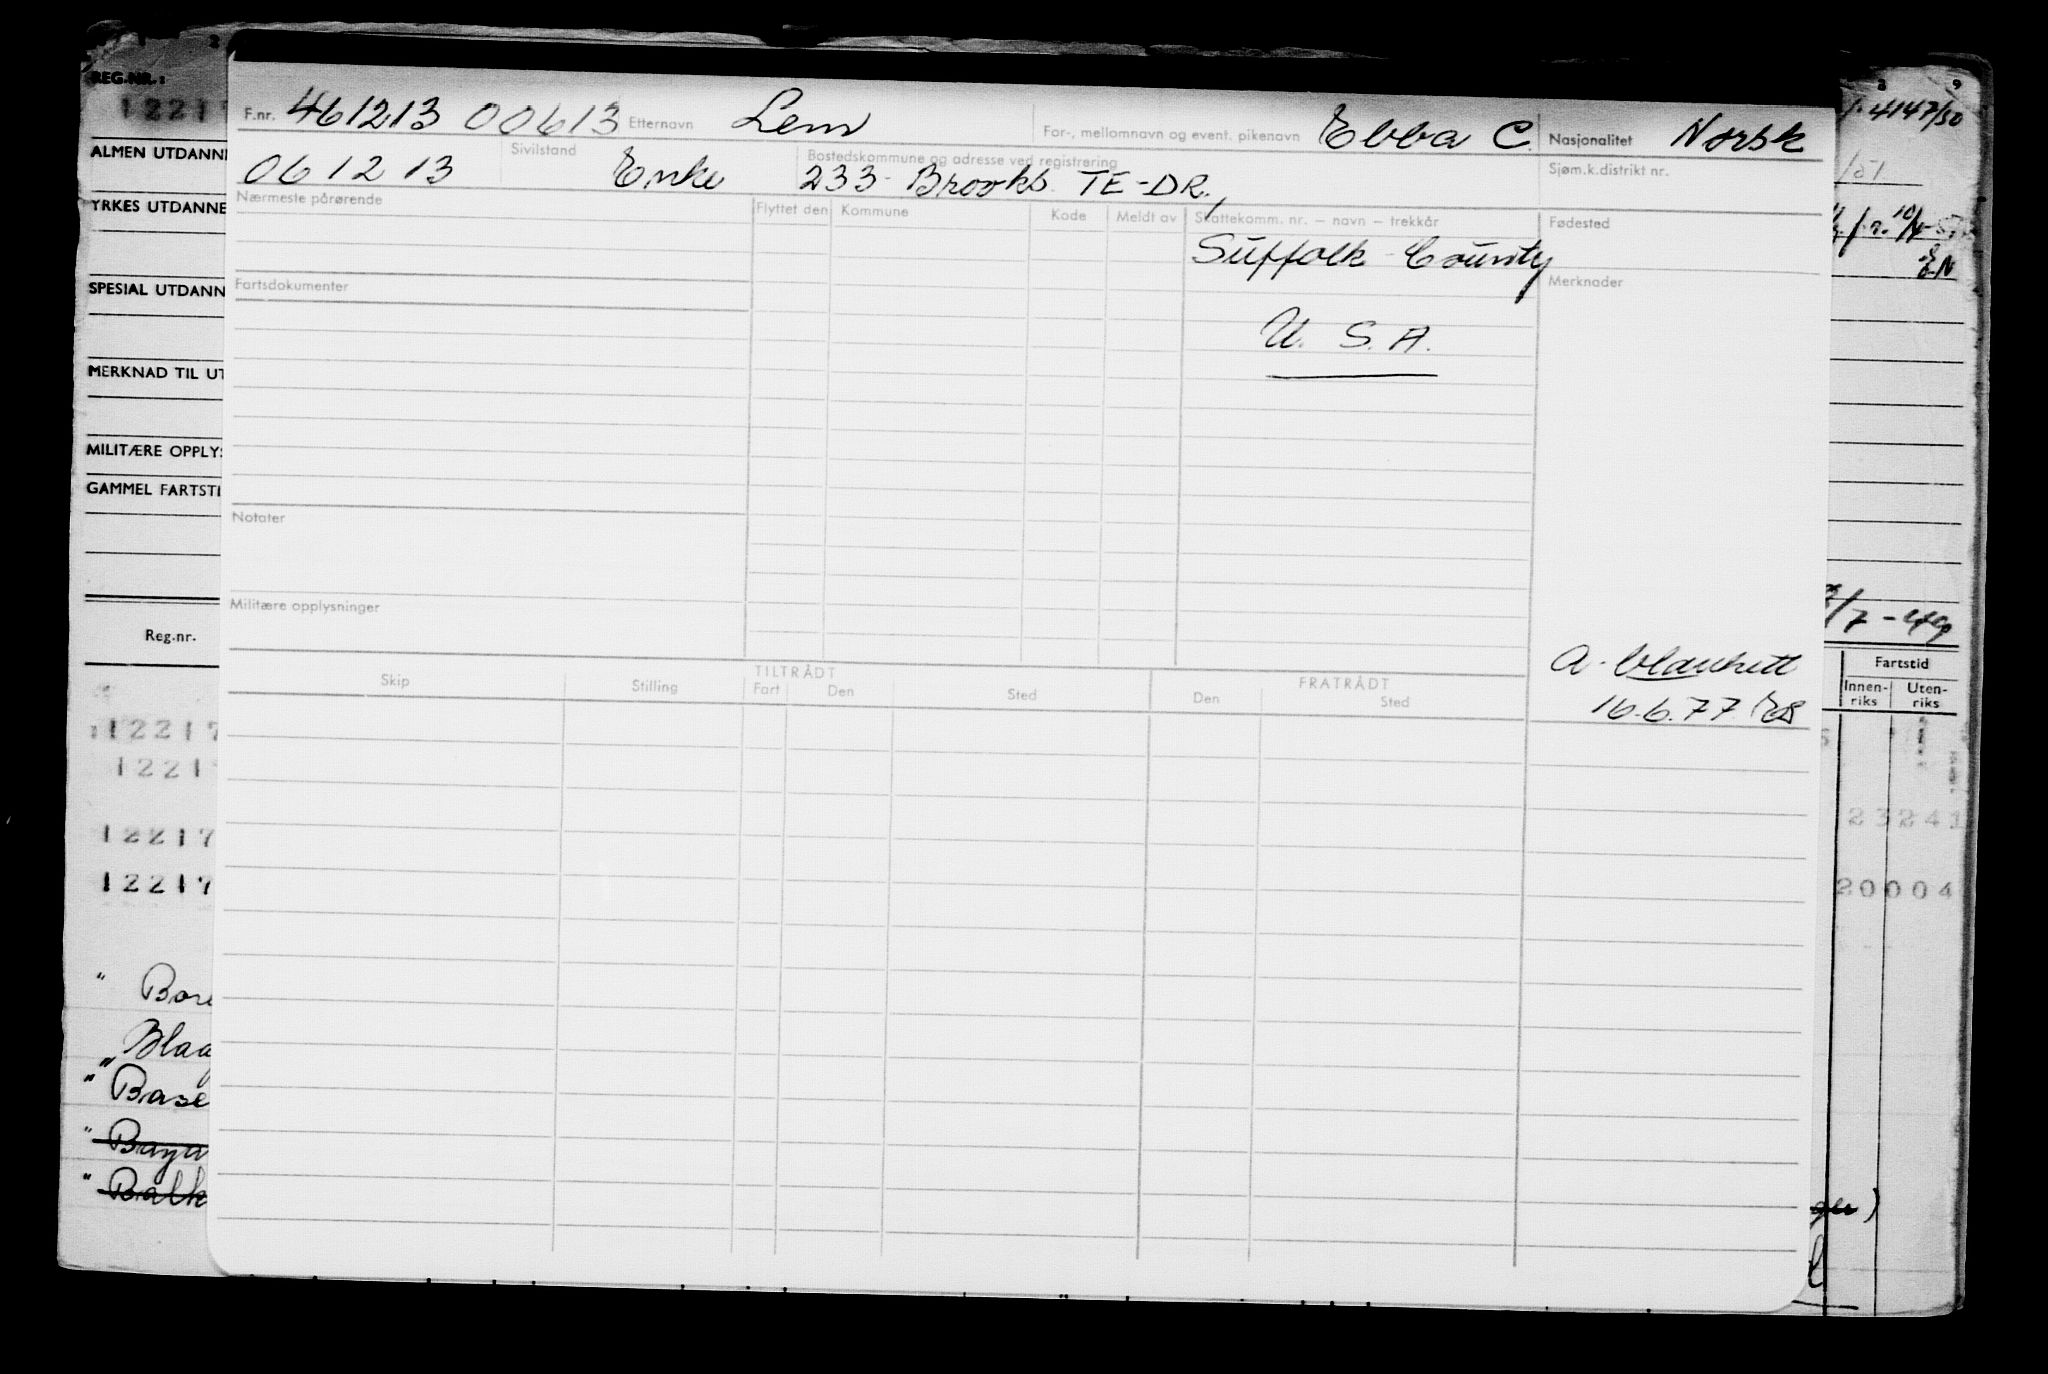 REG.NR.:
1221
ALMEN UTDANNE
YRKES UTDANNE
SPESIAL UTDANN
MERKNAD TIL UT
MILITÆRE OPPLYS
GAMMEL FARTSTI
Reg.nr.
12217
1221
12217
12217
" Bore
Blaa
" Base
" Baya
" Balk
F.nr. 461213 00613 Etternavn Lem For-, mellomnavn og event. pikenavn Ebba C. Nasjonalitet Norsk
061213 Sivilstand Enke Bostedskommune og adresse ved registrering 233 - Brooks TE-DR, Sjøm.k.distrikt nr.
Nærmeste pårørende Flyttet den Kommune Kode Meldt av Skattekomm. nr. – navn – trekkår Fødested
Suffolk County
Fartsdokumenter Merknader
U. S. A.
Notater
Militære opplysninger
A-blankett
16.6.77 EB
TILTRÅDT FRATRÅDT
Skip Stilling Fart Den Sted Den Sted
8 9
4147/50
/51
10/4-57
EN
/7-49
Fartstid
Innen-riks Uten-riks
23241
20004
ger)